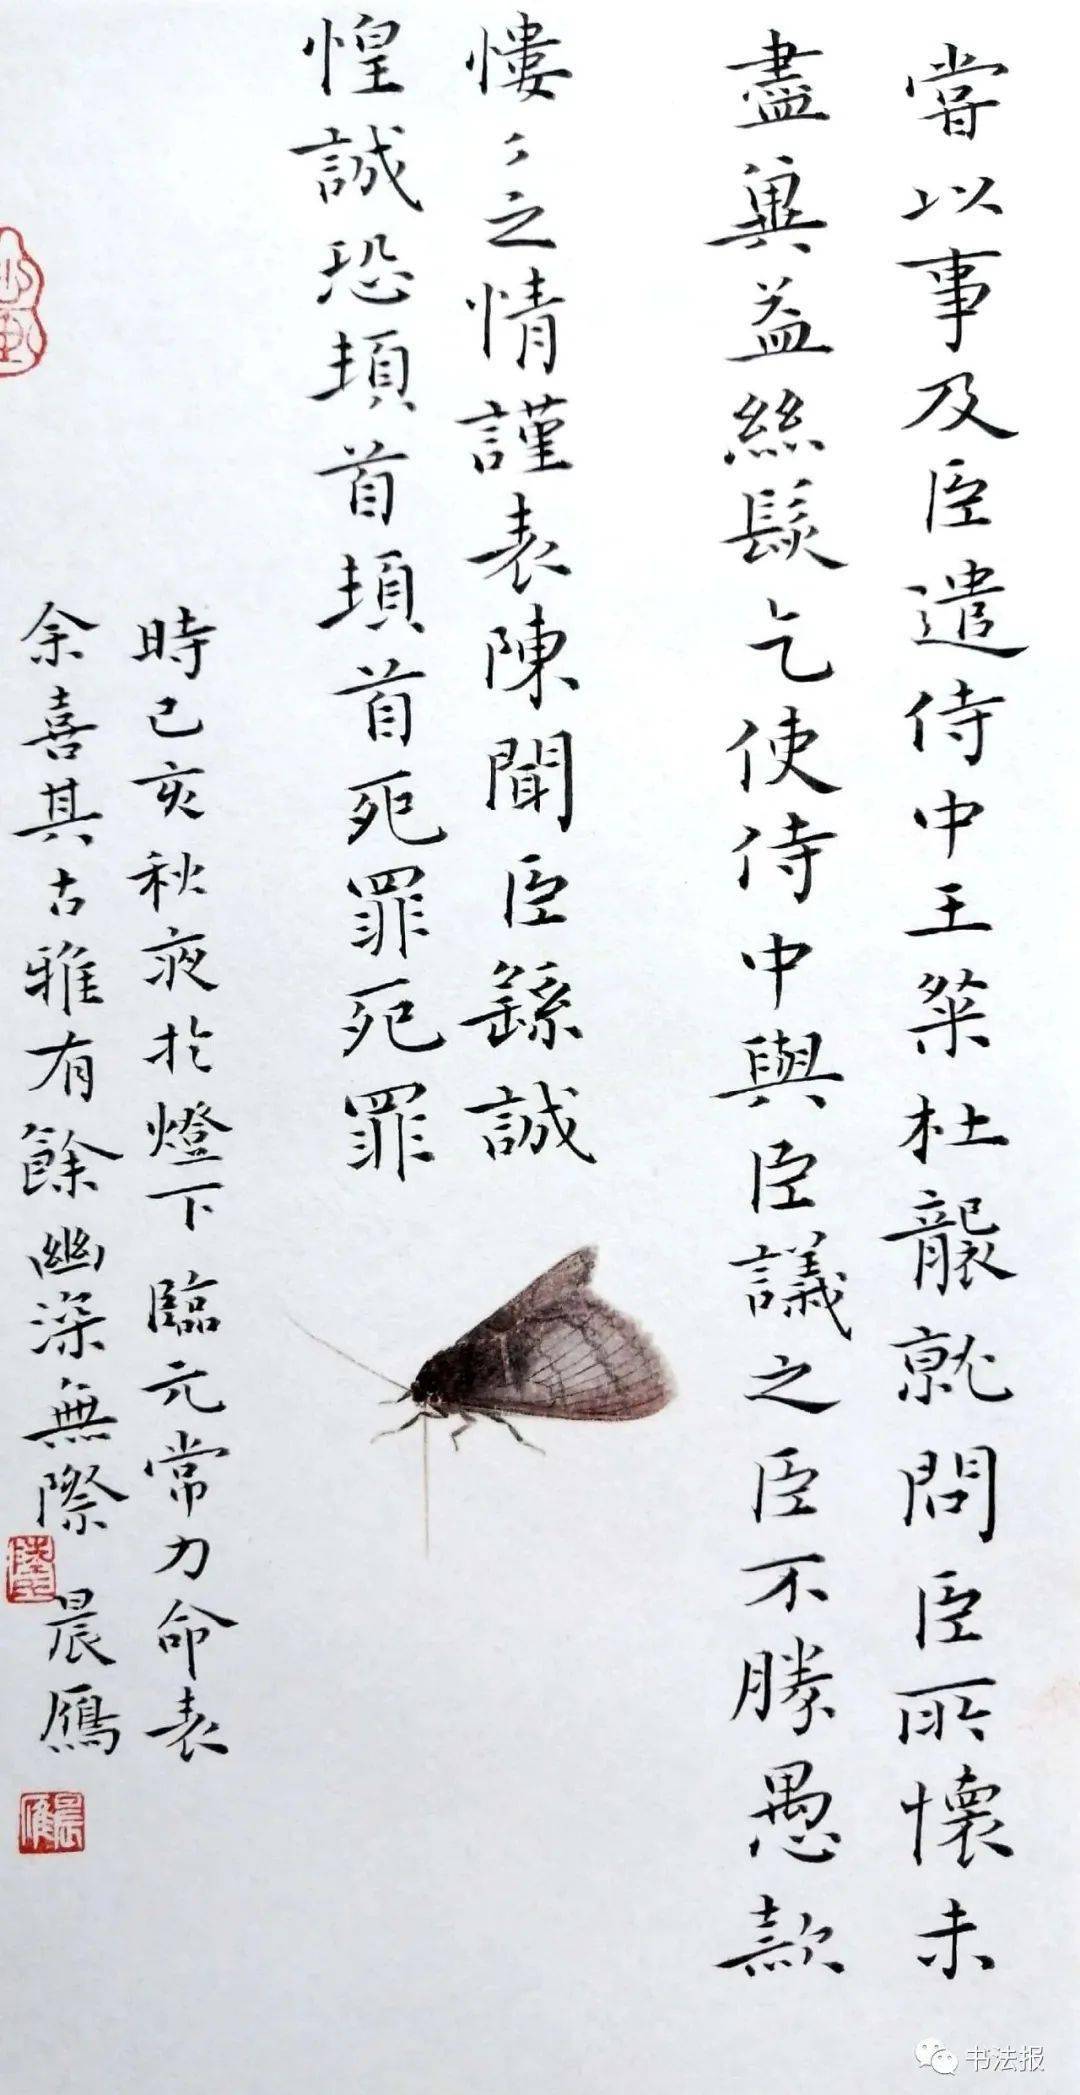 嘗以事及臣遣侍中王粲杜襲就問臣所懷未
盡兾益絲髮乞使侍中與臣議之臣不勝愚款
慺〻之情謹表陳聞臣繇誠
惶誠恐頓首頓首死罪死罪
時己亥秋夜於燈下臨元常力命表
余喜其古雅有餘幽深無際 晨鴈
晨雁
书法报